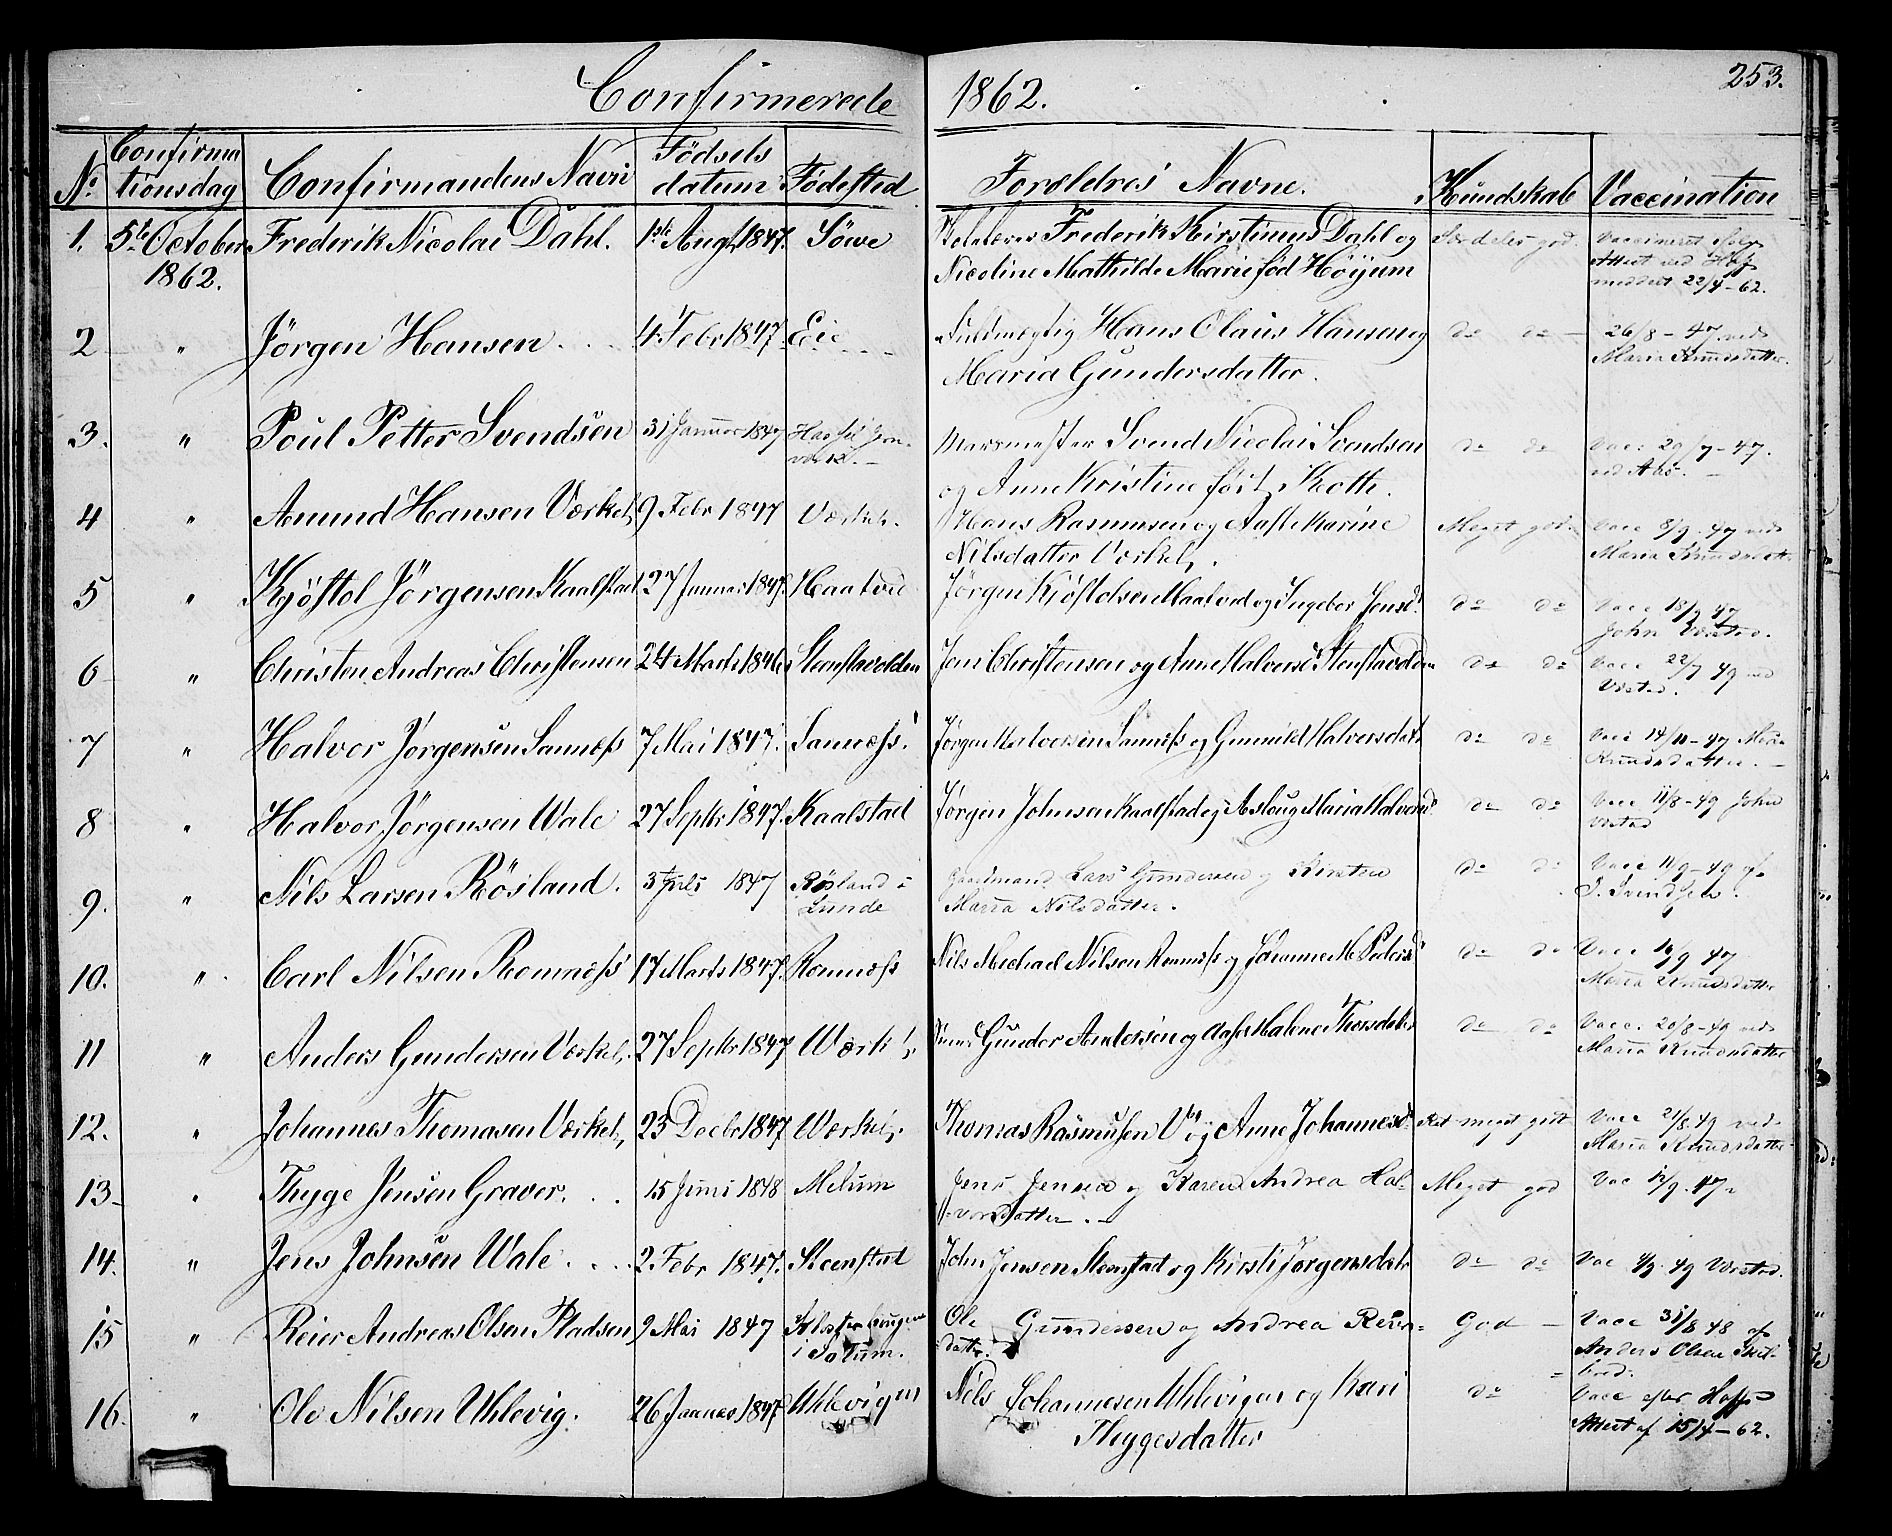 Confirmerede 1862. 253.
No Confirmationsdag Confirmandens Navn Fødsels datum Fødested Forældres Navne. Kundskab Vaccination
1. 5te October 1862. Frederik Nicolai Dahl. 1ste Augt 1847. Söwe Frederik Kirstinus Dahl og Særdeles god. Vaccineret
Nicoline Mathilde Marie fød Höyum Attest 22/4-62.
2 " Jörgen Hansen 4 Febr 1847 Eie Fuldmægtig Hans Olaus Hansen og do do 26/8-47 ved
Maria Gundersdatter. Maria Knudsdatter.
3. " Poul Petter Svendsen 31 Januar 1847 Svend Nicolai Svendsen do do Vacc: 29/7-47.
og Anne Kristine född Koth.
4 " Amund Hansen Værket, 9 Febr 1847 Værket. Hans Rasmusen og Aaste Karine Meget god Vacc 8/9-47 ved
Nilsdatter Værket, Maria Knudsdatt
5 " Kjöstol Jörgensen Kaalstad 27 Januar 1847. Haatved Jörgen Kjöstolsen Haatved og Ingebor Jensd. do do Vacc 18/9 47
John Værstad.
6 " Christen Andreas Christensen 24 Marts 1846 Stenstavolden Jens Christensen og Anne Halvorsd Stenstavolden do do Vacc 22/7 49 ved
Værstad.
7 " Halvor Jörgensen Sannæss 7 Mai 1847. Sannæss. Jörgen Halvorsen Sannæss og Gunnild Halvorsdatr do do Vacc 14/11-47 Maria
Knudsdatter.
8 " Halvor Jörgensen Wale 27 Septbr 1847. Kaalstad Jörgen Johnsen Kaalstad og Aslaug Maria Halvorsd do do Vacc 11/8-49 John
Værstad
9. " Nils Larsen Rösland. 3 Juli 1847 Rösland i Lunde Gaardmand Lars Gundersen og Kirsten do do Vacc 11/9-49 af
Maria Nilsdatter. Svendsen.
10. " Carl Nilsen Romnæss 17 Marts 1847. Romnæss Nils Michael Nilsen Romnæss og Johanne M. Pedersd do do Vacc 16/9 47
Maria Knudsdatter
11 " Anders Gundersen Værket, 27 Septbr 1847 Værk Gunder Andersen og Aase Malene Thorsdatr do do Vacc. 20/8-49 ved
Maria Knudsdatter
12. " Johannes Thomasen Værket, 23 Decbr 1847 Værket, Thomas Rasmusen og Anne Johannesd. Ret meget godt Vacc 21/8 49 ved
Maria Knudsdatter
13 " Thyge Jensen Graver. 15 Juni 1848 Melum Jens Jensen og Karen Andrea Halvorsdatter. Meget god Vac
14. " Jens Johnsen Wale 2 Febr 1847. Steenstad John Jensen Steenstad og Kirsti Jörgensdatr do do Vac 4/9-49 Værstad.
15 " Reier Andreas Olsen Pladsen, 9 Mai 1847 i Solum. Ole Gundersen og Andrea Reiersdatter. God Vacc 31/8 48 af
Anders Olsen
16. " Ole Nilsen Uhlevig. 26 Januar 1847 Uhlevigen Nils Johannesen Uhlevigen og Kari do Vacc efter
Thygesdatter Attest af 15/4-62.